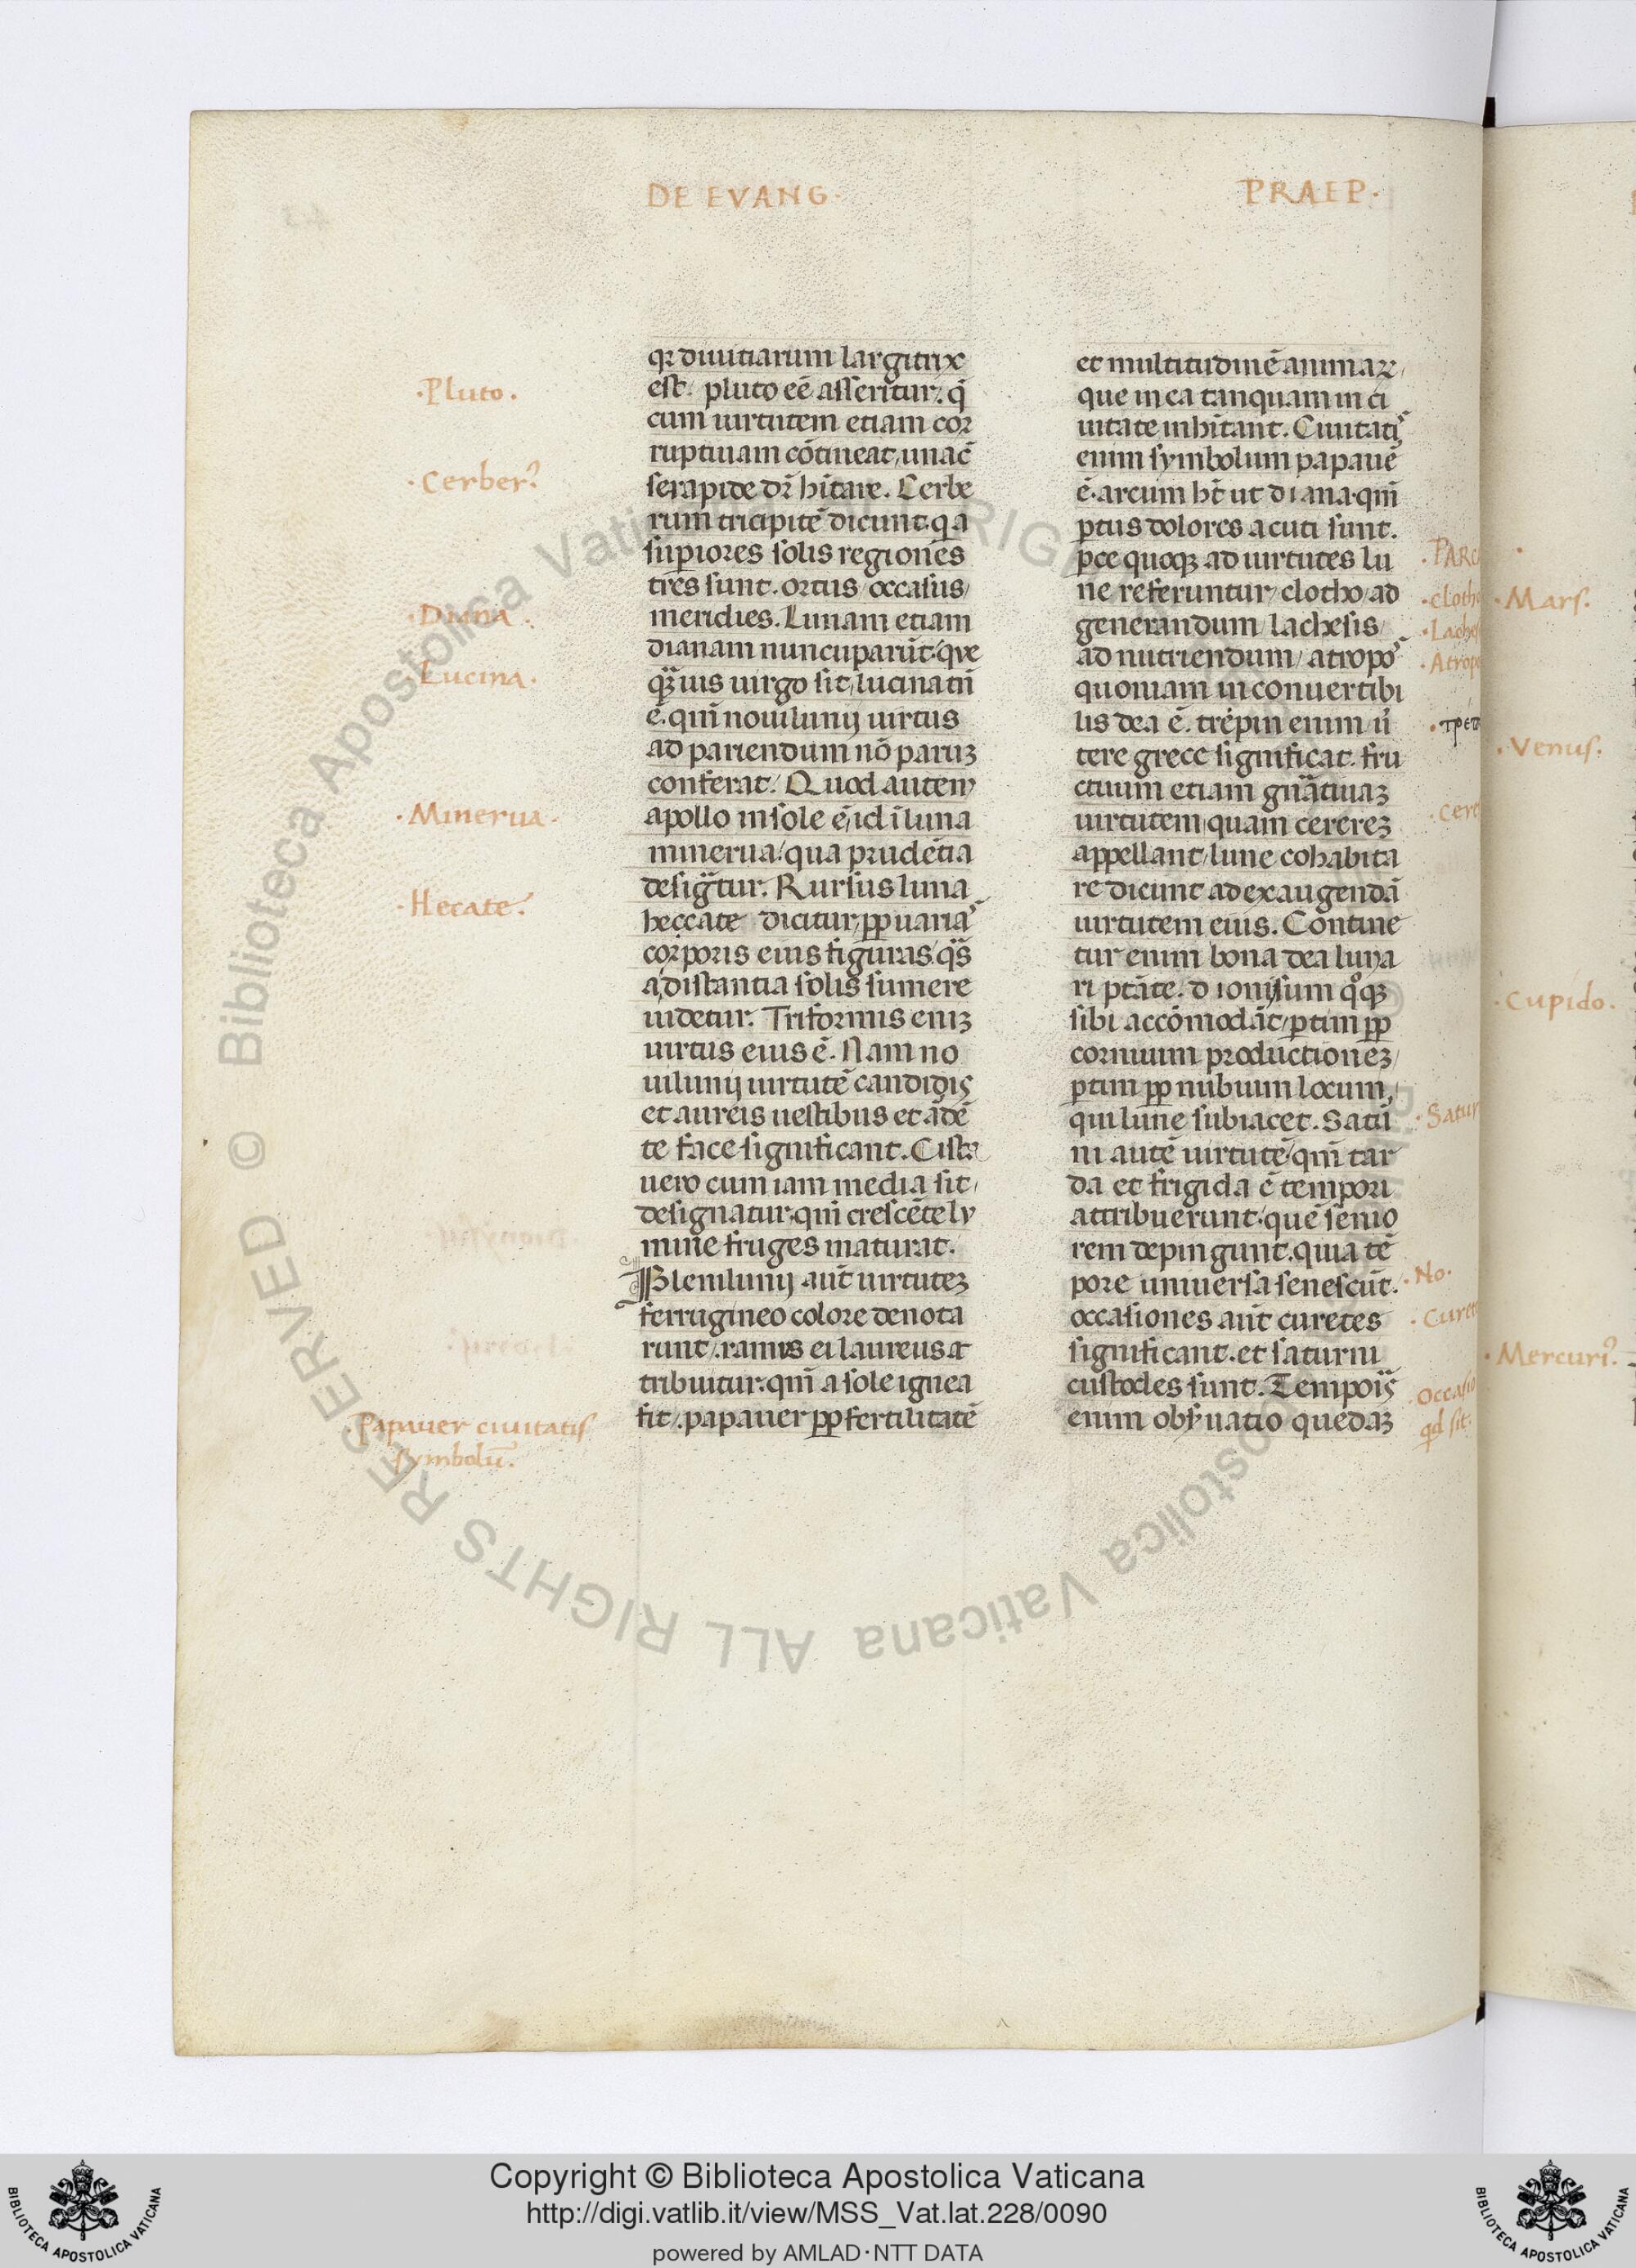 DE EVANG·
PRAEP·
qꝫ diuitiarum largitrix
est. pluto eē asseritur. q̇
cum uirtutem etiam cor
ruptiuam cōtineat, unac̄
serapide dr̄ hītare. Cerbe
rum tricipitē dicunt. q a
supiores solis regiones
tres sunt. ortus/ occasus/
meridies. Lunam etiam
dianam nuncuparūt. que
qꝫuis uirgo sit, lucina tn̄
ē. qm̄ nouilunij uirtus
ad pariendum nō paruꝫ
conferat. Quod autem
apollo in sole ē, id ī luna
minerua. qua prudētia
desigᷓtur. Rursus luna
heccate dicitur, ꝓp uarias
corporis eius figuras, qᷓs
a distantia solis sumere
uidetur. Triformis eniꝫ
uirtus eius ē. Nam no
uilunij uirtutē candidis
et aureis uestibus et ādē
te face significant. Cista
uero cum iam media sit/
designatur. qm̄ crescēte lu
mine fruges maturat.
Plenilunij aūt uirtuteꝫ
ferrugineo colore denota
runt. ramus ei laureus at
tribuitur. qm̄ a sole ignea
fit. papauer ꝓp fertilitatē
et multitudinē animaꝝ,
que in ea tanquam in ci
uitate inhītant. Ciuitatis
enim symbolum papauē
ē. arcum ht̄ ut diana. qm̄
ptus dolores acuti sunt.
pce quoqꝫ ad uirtutes lu
ne referuntur/ clotho/ ad
generandum/ lachesis/
ad nutriendum/ atropos
quoniam inconuertibi
lis dea ē. trépin enim ū
tere grece significat. fru
ctuum etiam gnᷓtiuaꝫ
uirtutem, quam cerereꝫ
appellant, lune cohabita
re dicunt ad exaugendā
uirtutem eius. Contine
tur enim bona dea luna
ri ptāte. dionysum qͦqꝫ
sibi accōmodāt, ptim ꝓp
cornuum productioneꝫ,
ptim ꝓp nubium locum,
qui lune subiacet. Satur
ni autē uirtutē, qm̄ tar
da et frigida ē tempori
attribuerunt. quē senio
rem depingunt. quia tē
pore uniuersa senescūt.
occasiones aūt curetes
significant. et saturni
custodes sunt. Temporis
enim obseruatio quedaꝫ
·Pluto.
·Cerberꝰ
·Diana·
·Lucina·
·Minerua·
·Hecate·
·Papauer ciuitatis
symbolū·
·clotho
·No·
qd sit·
·Mars·
·Venus·
·Cupido·
·Mercuriꝰ
Copyright © Biblioteca Apostolica Vaticana
http://digi.vatlib.it/view/MSS_Vat.lat.228/0090
powered by AMLAD·NTT DATA
BIBLIOTECA APOSTOLICA VATICANA
BIBLIOTECA APOSTOLICA VATICANA
© Biblioteca Apostolica Vaticana ALL RIGHTS RESERVED